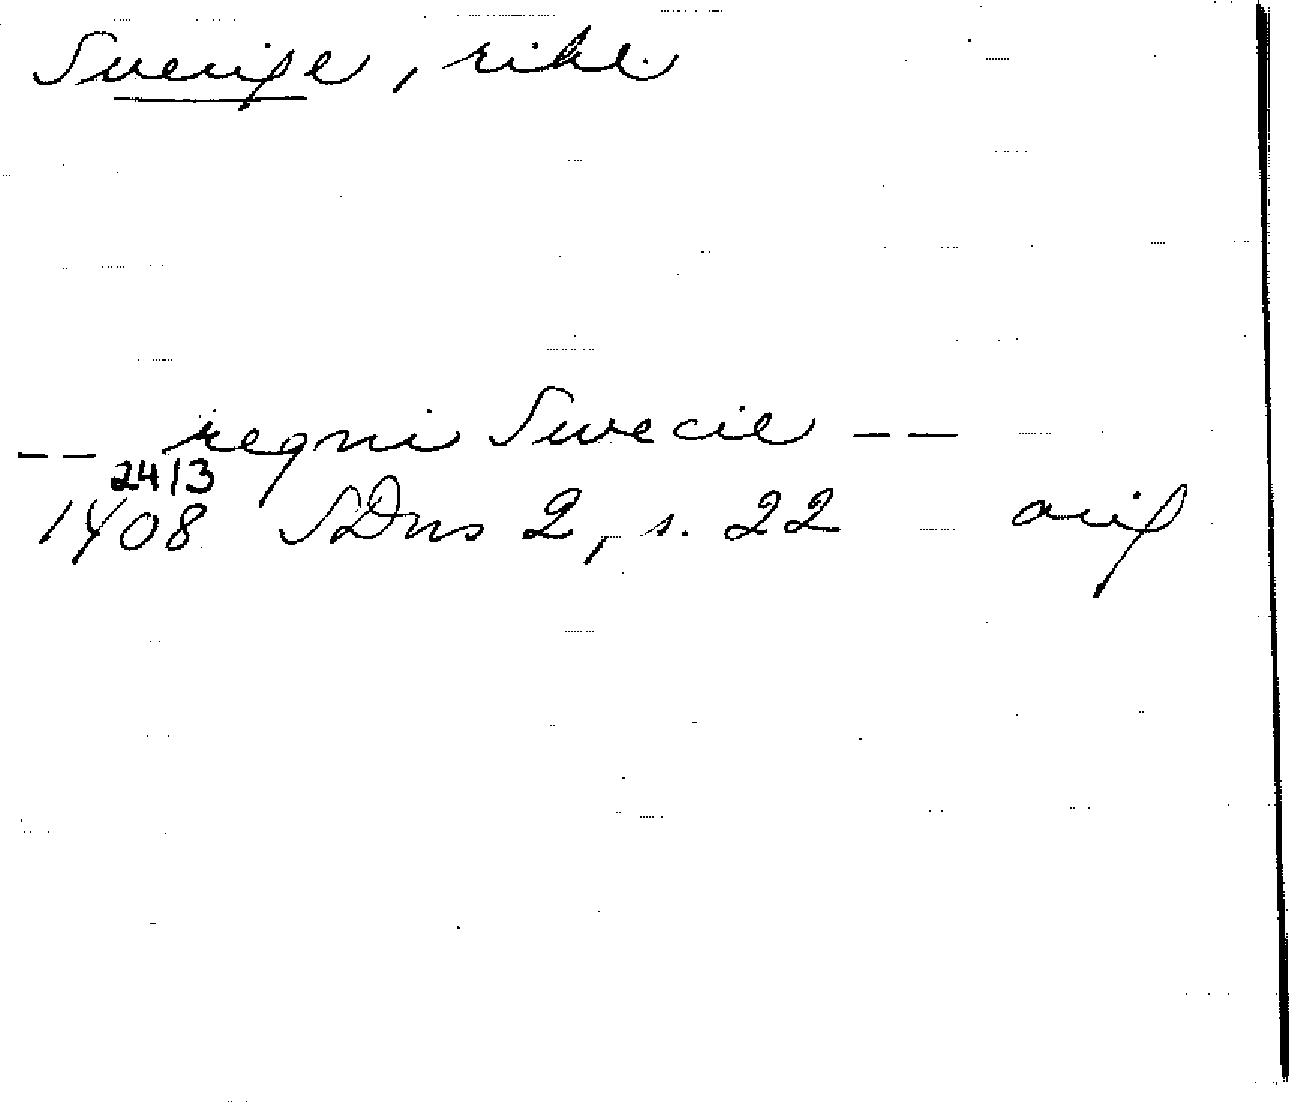 Sverige, rike.
-- regni Swecie --
24/3
1408 SDns 2, s. 22 orig